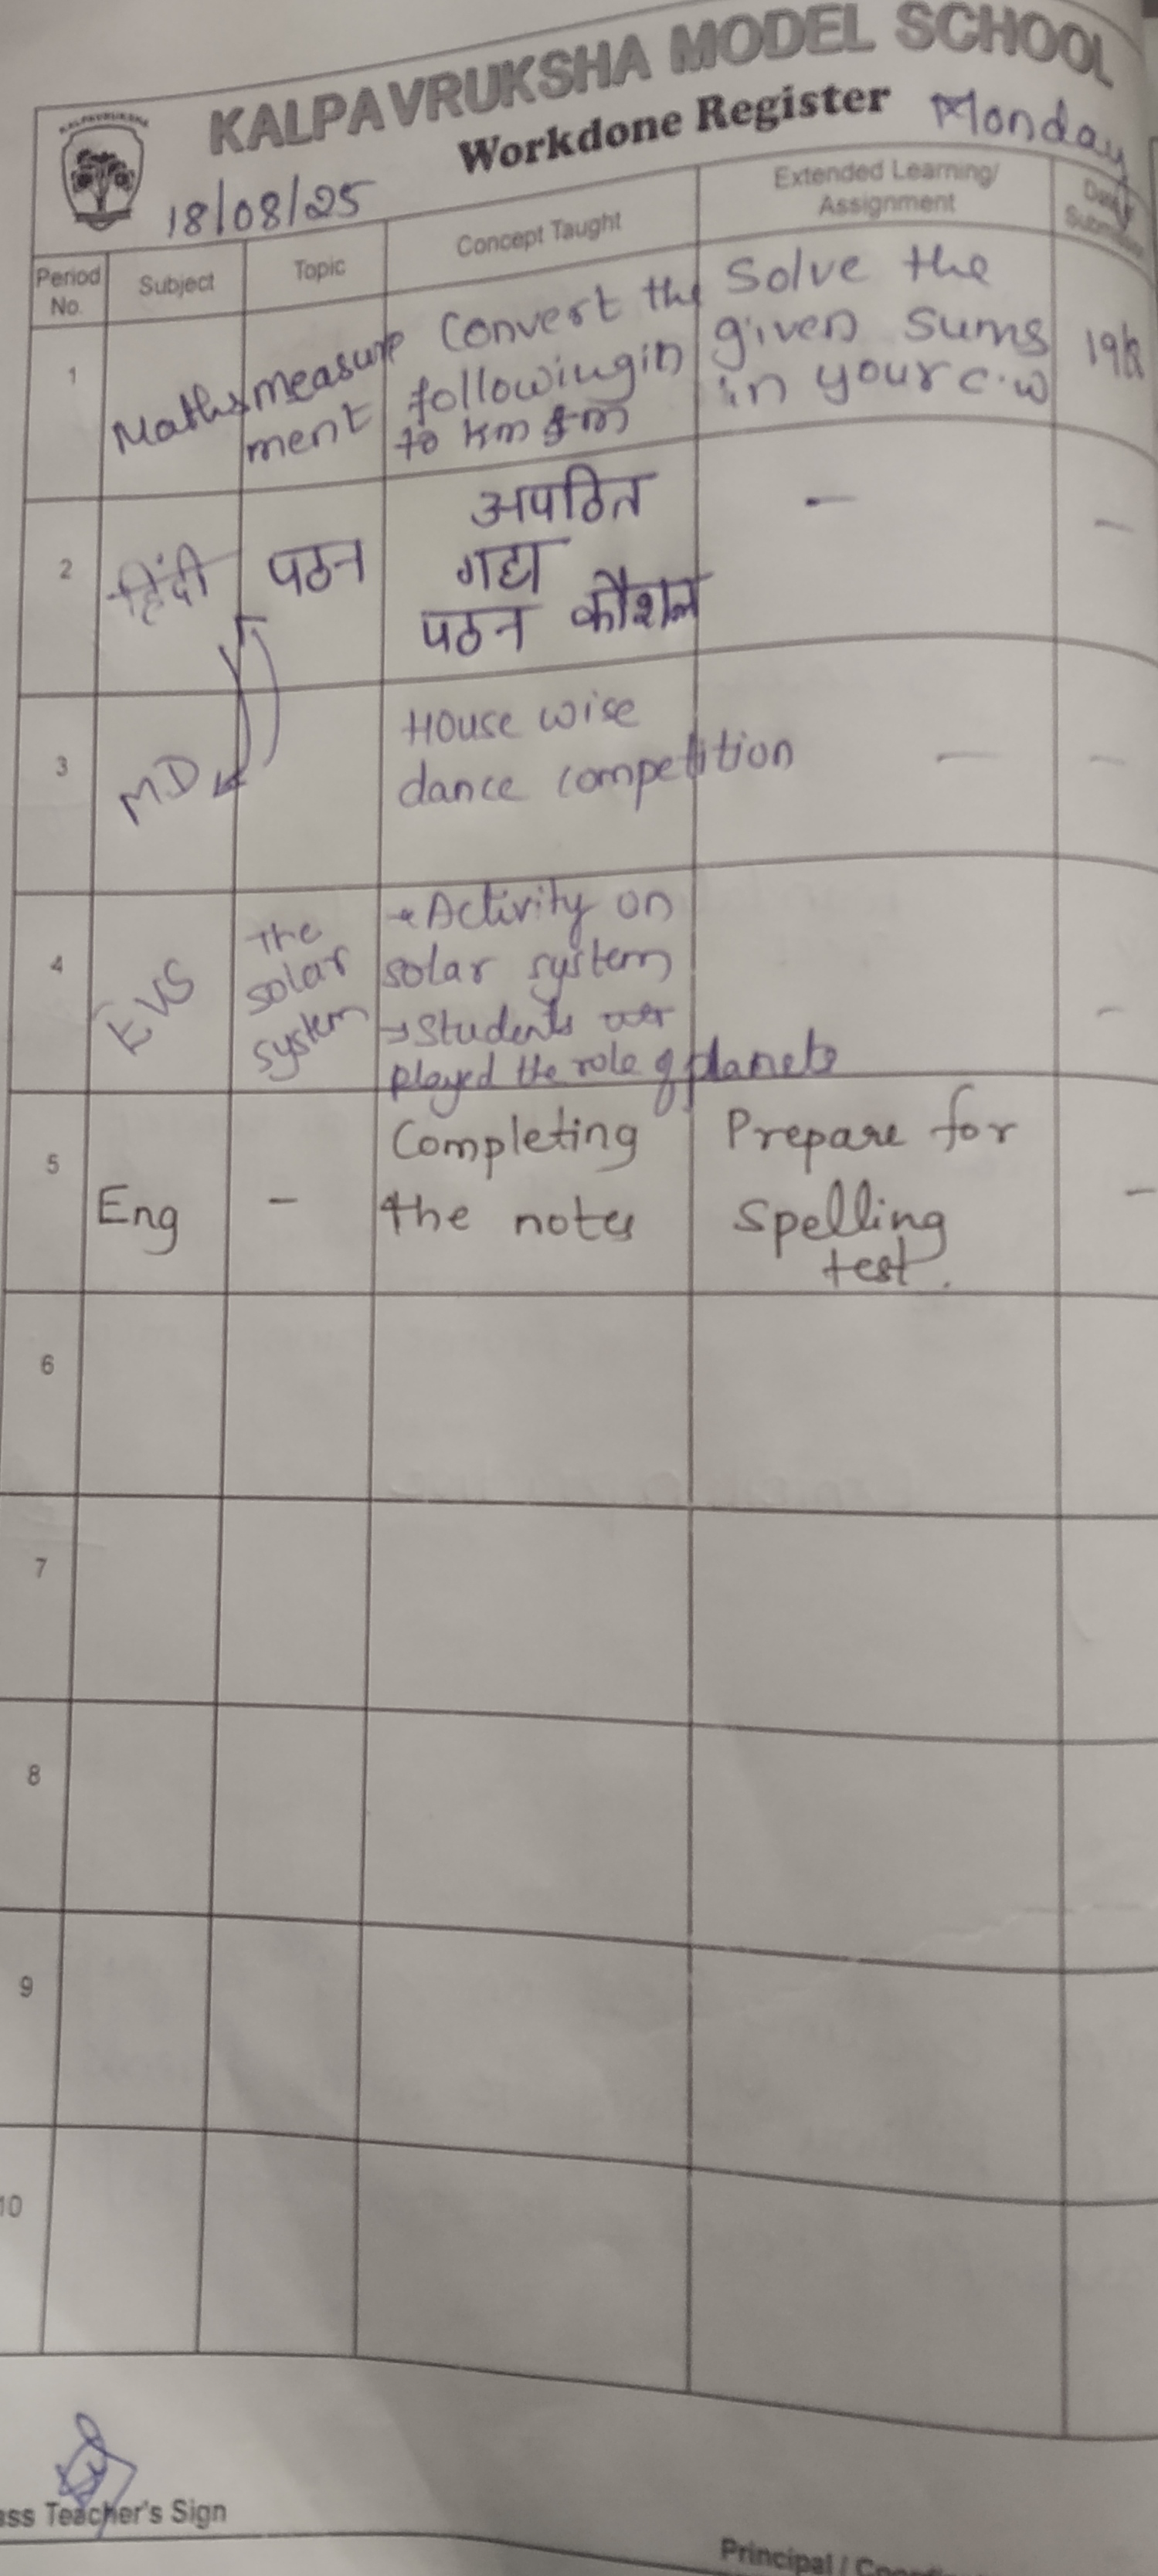 KALPAVRUKSHA MODEL SCHOOL
KALPAVRUKSHA
Workdone Register
Monday
18/08/25
Period No.
Subject
Topic
Concept Taught
Extended Learning/
Assignment
1
Maths
measure
ment
Convert the
following in
to km & m
Solve the
given sums
in your c.w
2
हिंदी
पठन
अपठित
गद्य
पठन कौशल
-
-
3
MD
House wise
dance competition
-
-
4
EVS
The
solar
system
→ Activity on
solar system
→ Students
played the role of planets
-
5
Eng
-
Completing
the notes
Prepare for
Spelling
test.
-
6
7
8
9
10
Teacher's Sign
Principal /